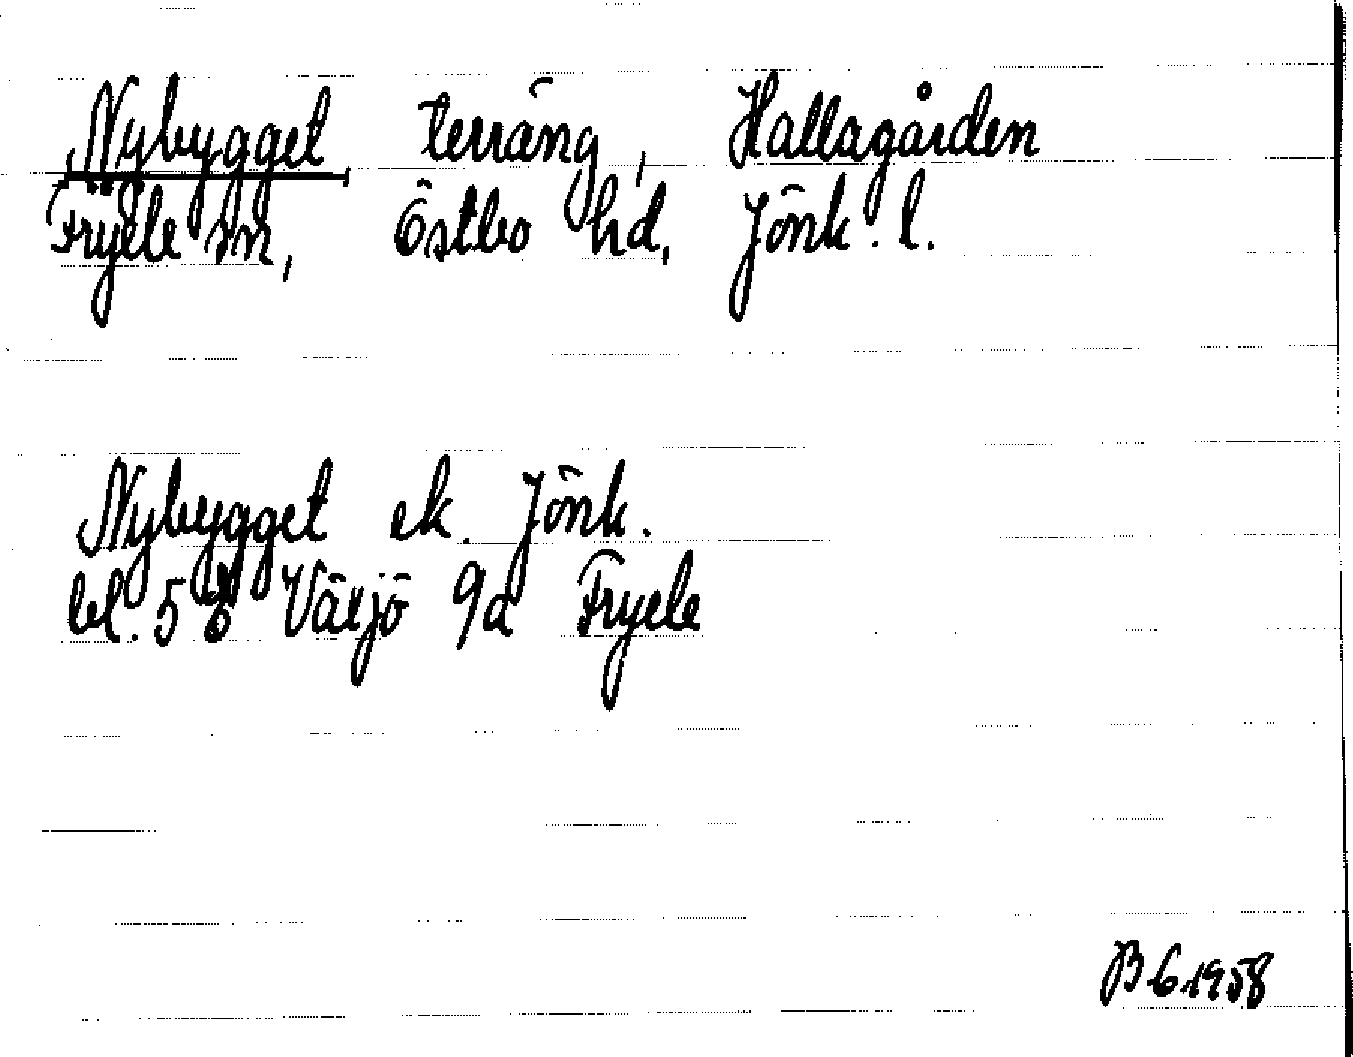 Nybygget terräng, Hallagården
Fryele sn, Östbo hd, Jönk. l.
Nybygget ek. Jönk.
bl. 56 Växjö 9a Fryele
BG 1958